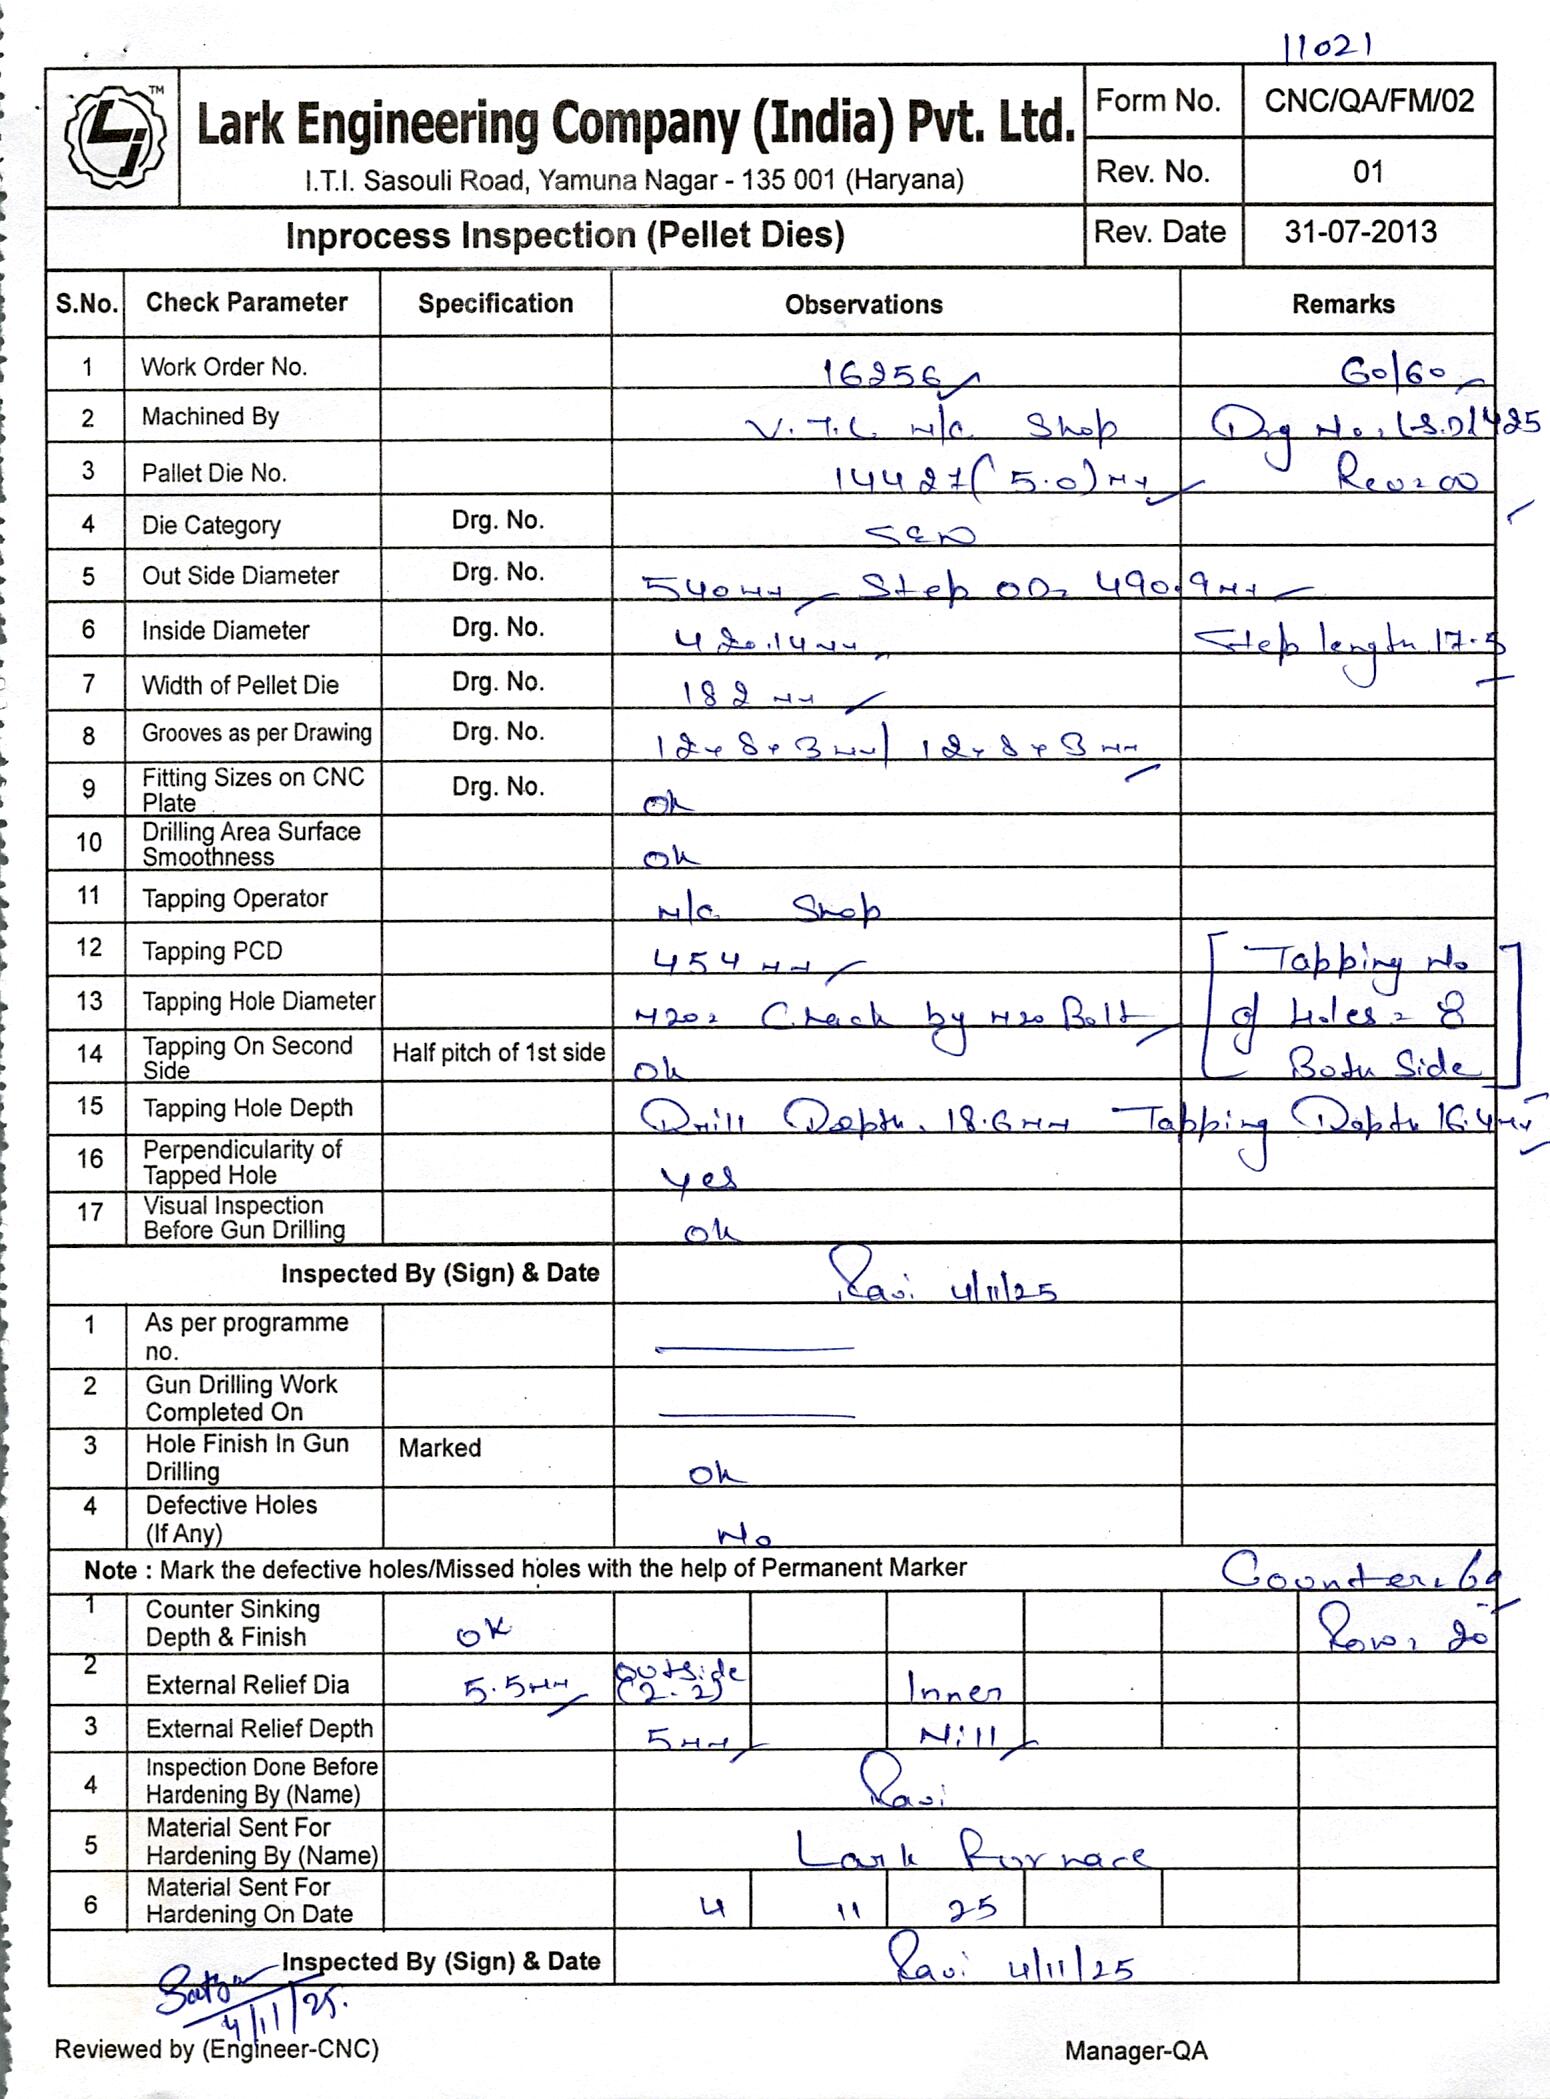 11021
TM
Lark Engineering Company (India) Pvt. Ltd.
I.T.I. Sasouli Road, Yamuna Nagar - 135 001 (Haryana)
Form No. CNC/QA/FM/02
Rev. No. 01
Inprocess Inspection (Pellet Dies) Rev. Date 31-07-2013
S.No. Check Parameter Specification Observations Remarks
1 Work Order No. 16256 60/60
2 Machined By V.T.L M/C Shop Drg No. LSD/1425
3 Pallet Die No. 14427 (5.0) MM Rev = 00
4 Die Category Drg. No.
5 Out Side Diameter Drg. No. 540MM Step OD = 490.9MM
6 Inside Diameter Drg. No. 420.14MM Step length 17.5
7 Width of Pellet Die Drg. No. 182 MM
8 Grooves as per Drawing Drg. No. 12x8x3MM/12x8x3MM
9 Fitting Sizes on CNC Plate Drg. No. Ok
10 Drilling Area Surface Smoothness Ok
11 Tapping Operator M/C Shop
12 Tapping PCD 454 MM [Tapping No
13 Tapping Hole Diameter M20 = Check by M20 Bolt of Holes = 8
14 Tapping On Second Side Half pitch of 1st side Ok Both Side]
15 Tapping Hole Depth Drill Depth = 18.6MM Tapping Depth 16.4MM
16 Perpendicularity of Tapped Hole Yes
17 Visual Inspection Before Gun Drilling Ok
Inspected By (Sign) & Date Ravi 4/11/25
1 As per programme no.
2 Gun Drilling Work Completed On
3 Hole Finish In Gun Drilling Marked Ok
4 Defective Holes (If Any) No
Note : Mark the defective holes/Missed holes with the help of Permanent Marker Counter =
1 Counter Sinking Depth & Finish OK Row = 20
2 External Relief Dia 5.5MM Outside (2.2) Inner
3 External Relief Depth 5MM Nill
4 Inspection Done Before Hardening By (Name) Ravi
5 Material Sent For Hardening By (Name) Lark Furnace
6 Material Sent For Hardening On Date 4 11 25
Inspected By (Sign) & Date Ravi 4/11/25
4/11/25.
Reviewed by (Engineer-CNC) Manager-QA